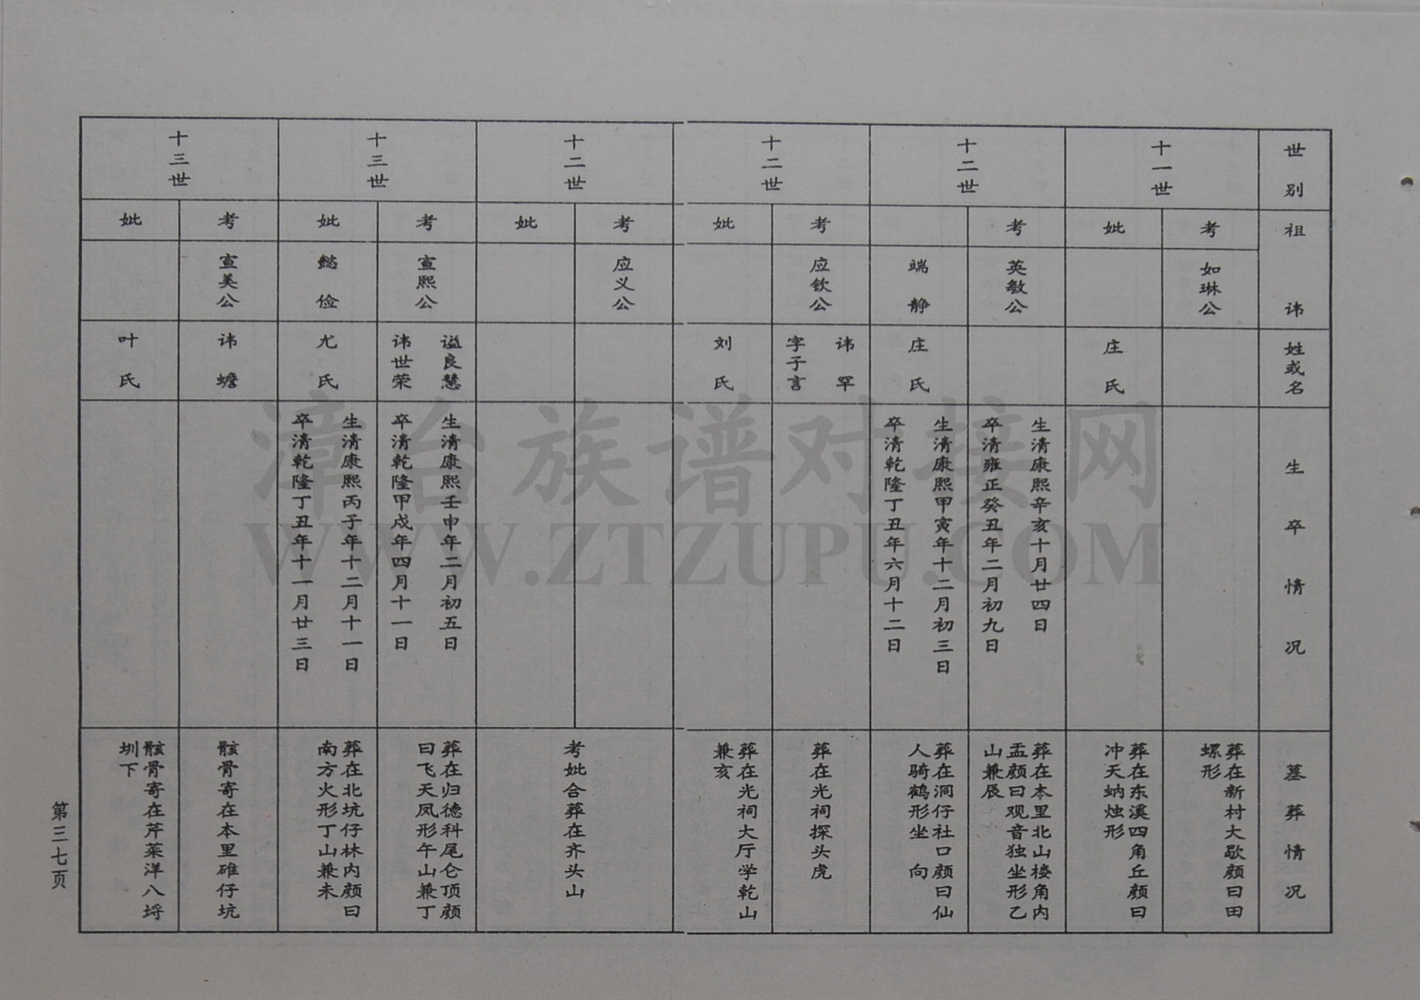 世别
祖讳
姓或名
生卒情况
墓葬情况
十一世
考
如琳公
葬在新村大歇颜曰田
螺形
妣
庄氏
葬在东溪四角丘颜曰
冲天蚋烛形
十二世
考
英敏公
生清康熙辛亥十月廿四日
卒清雍正癸丑年二月初九日
葬在本里北山楼角内
盂颜曰观音独坐形乙
山兼辰
端静
庄氏
生清康熙甲寅年十二月初三日
卒清乾隆丁丑年六月十二日
葬在洞仔社口颜曰仙
人骑鹤形坐 向
十二世
考
应钦公
讳罕
字子言
葬在光祠探头虎
妣
刘氏
葬在光祠大厅学乾山
兼亥
十二世
考
应义公
妣
考妣合葬在齐头山
十三世
考
宣熙公
谥良慧
讳世荣
生清康熙壬申年二月初五日
卒清乾隆甲戌年四月十一日
葬在归德科尾仑顶颜
曰飞天凤形午山兼丁
妣
懿俭
尤氏
生清康熙丙子年十二月十一日
卒清乾隆丁丑年十一月廿三日
葬在北坑仔林内颜曰
南方火形丁山兼未
十三世
考
宣美公
讳蟾
骸骨寄在本里碓仔坑
妣
叶氏
骸骨寄在芹菜洋八埒
圳下
第三七页
漳台族谱对接网
WWW.ZTZUPU.COM